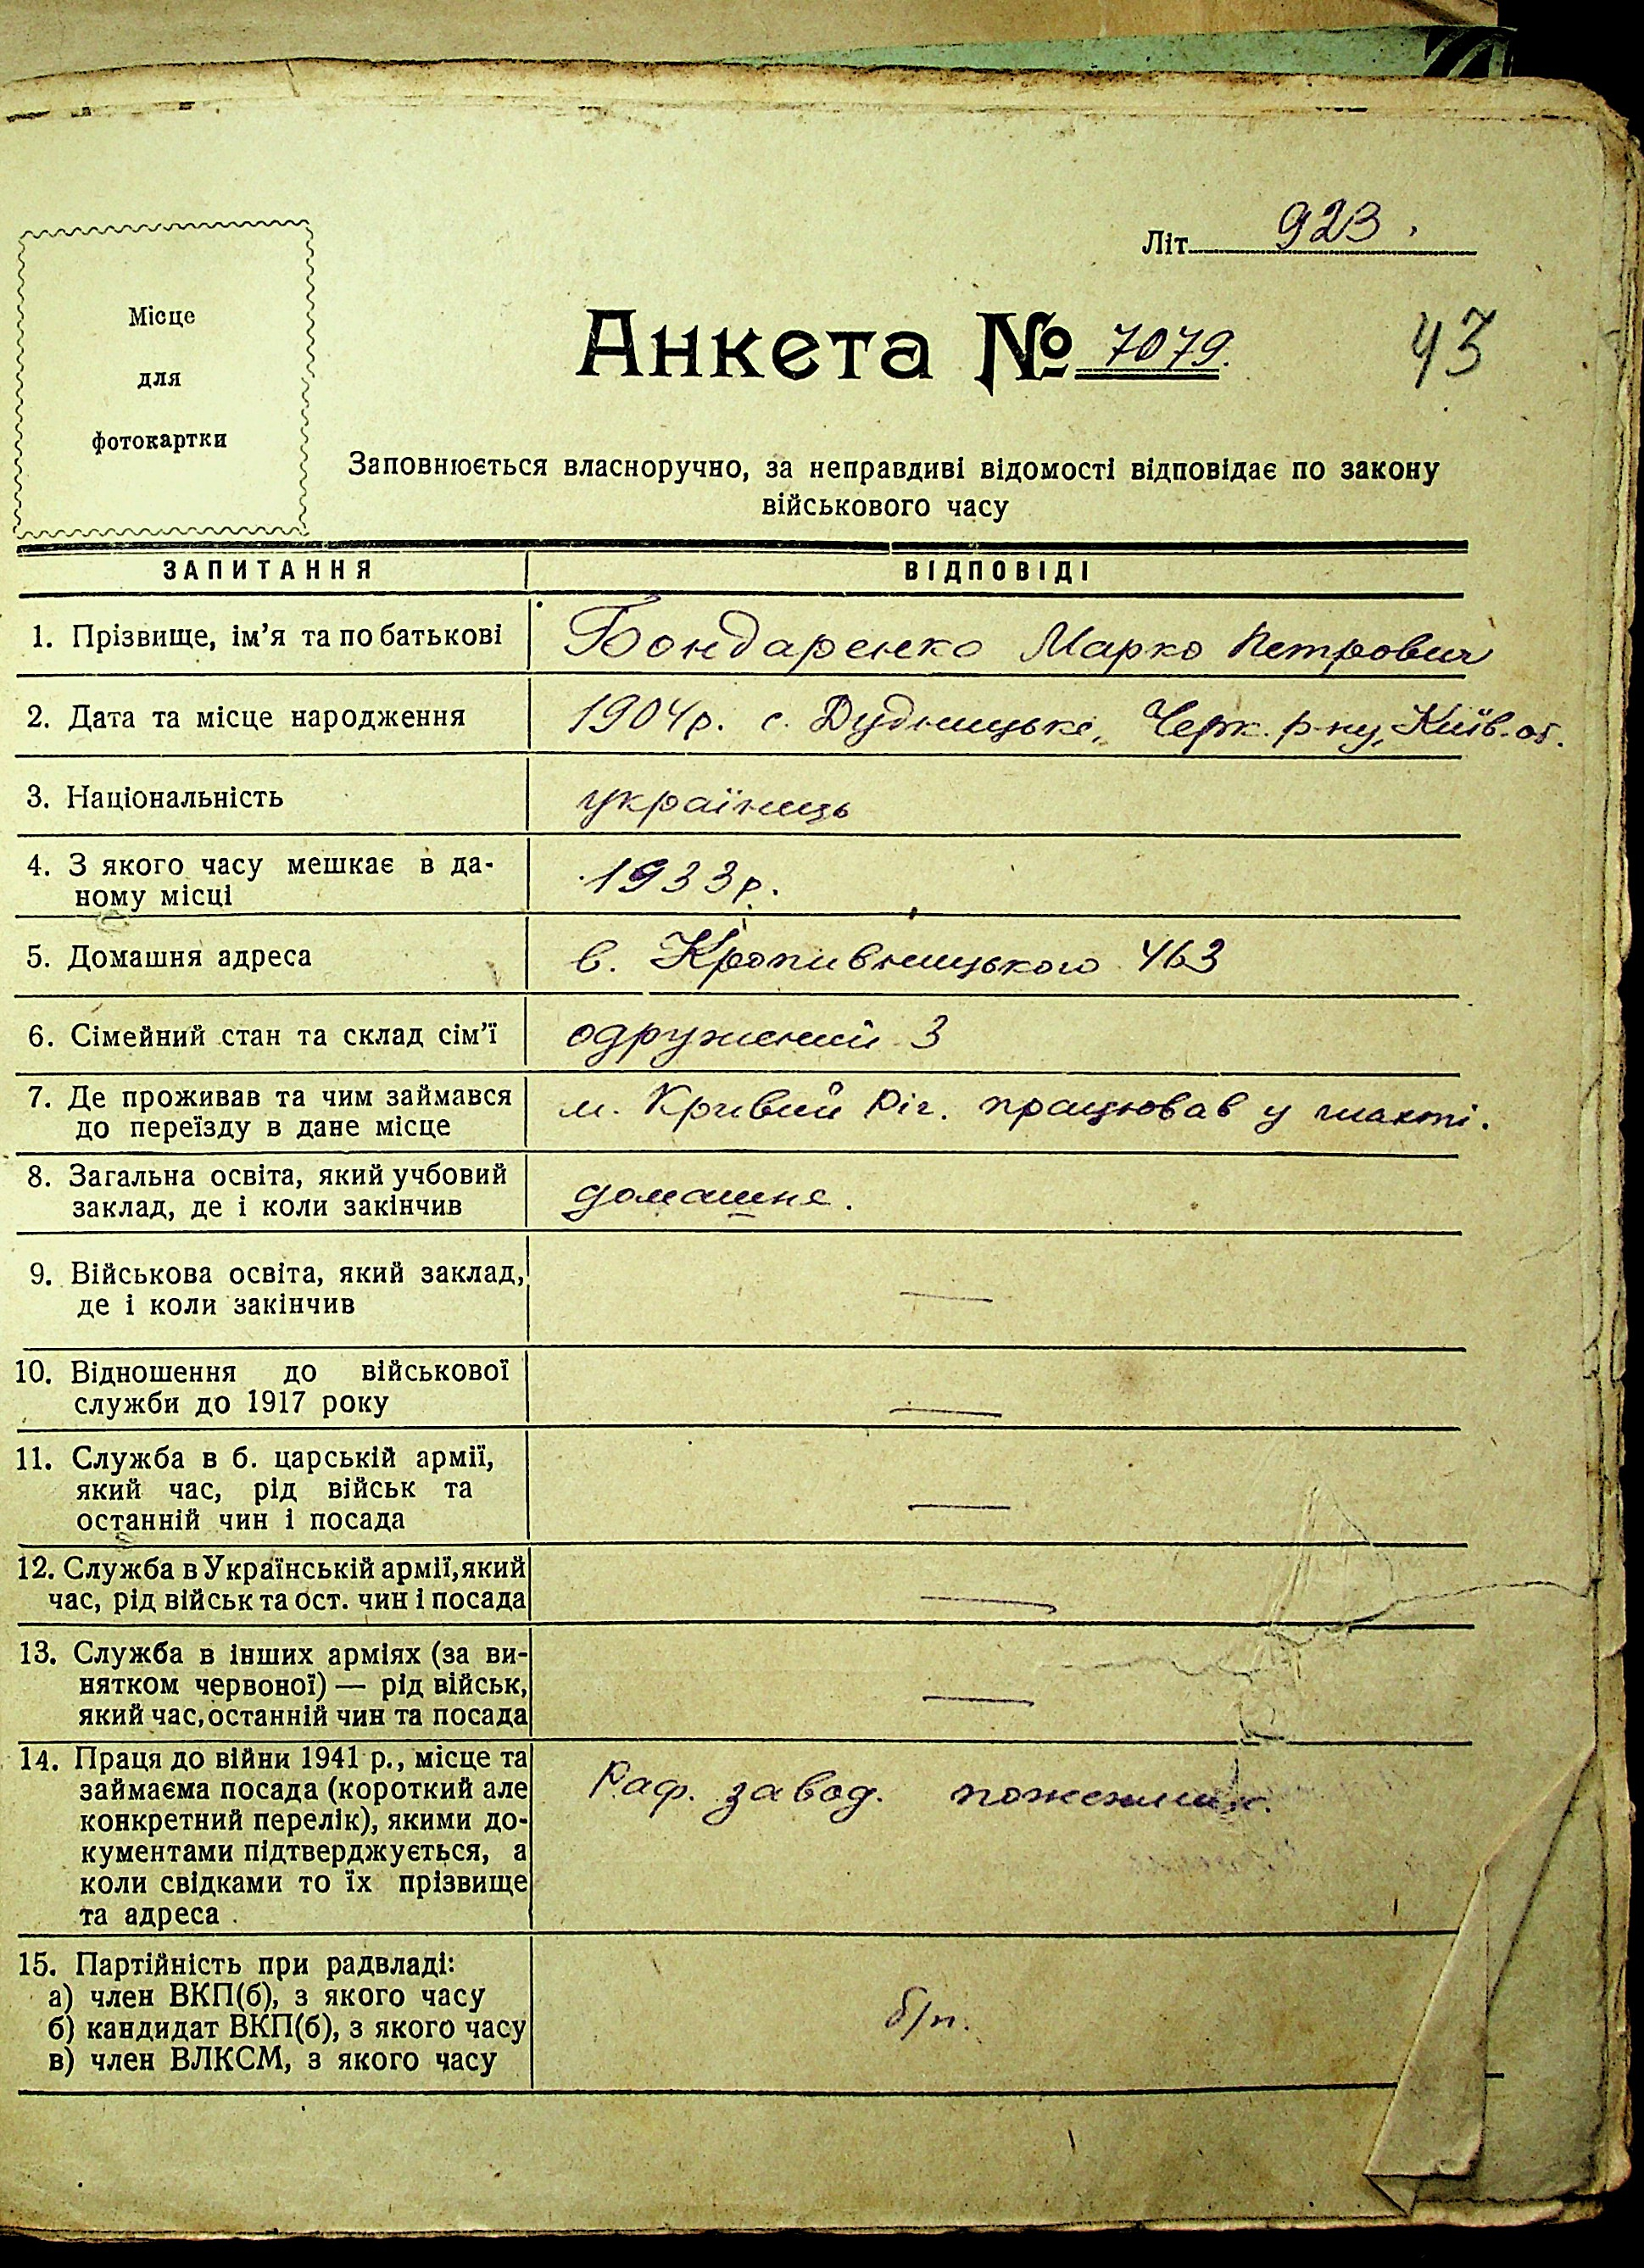 Літ. 923.
Місце
для
фотокартки
Анкета № 7079.
43
Заповнюється власноручно, за неправдиві відомості відповідає по закону
військового часу
ЗАПИТАННЯ ВІДПОВІДІ
1. Прізвище, ім'я та по батькові Бондаренко Марко Петрович
2. Дата та місце народження 1904 р. с. Черк. р-ну, Київ. об.
3. Національність українець
4. З якого часу мешкає в да-
ному місці 1933 р.
5. Домашня адреса в. Кропивницького 463
6. Сімейний стан та склад сім'ї одружений 3
7. Де проживав та чим займався
до переїзду в дане місце м. Кривий Ріг. працював у шахті.
8. Загальна освіта, який учбовий
заклад, де і коли закінчив домашнє.
9. Військова освіта, який заклад,
де і коли закінчив —
10. Відношення до військової
служби до 1917 року —
11. Служба в б. царській армії,
який час, рід військ та
останній чин і посада —
12. Служба в Українській армії, який
час, рід військ та ост. чин і посада —
13. Служба в інших арміях (за ви-
нятком червоної) — рід військ,
який час, останній чин та посада —
14. Праця до війни 1941 р., місце та
займаєма посада (короткий але
конкретний перелік), якими до-
кументами підтверджується, а
коли свідками то їх прізвище
та адреса Раф. завод. пожежник.
15. Партійність при радвладі:
а) член ВКП(б), з якого часу
б) кандидат ВКП(б), з якого часу
в) член ВЛКСМ, з якого часу
б/п.